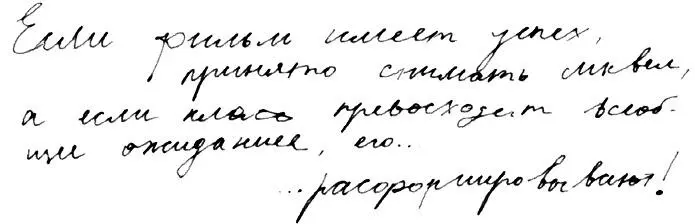 Если фильм имеет успех,
принято снимать сиквел,
а если класс превосходит всеоб-
щие ожидание, его..
...расформировывают!